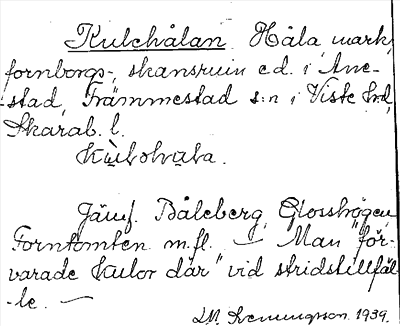 Kulehålan. Håla mark,
fornborgs-, skansruin e.d. i Ane-
-stad, Främmestad s:n i Viste hd,
Skarab. l.
Jämf. Båleberg, Glosshögen,
Forntomten m.fl. — Man "för-
varade kulor där" vid stridstillfäl-
-le. —
1939.